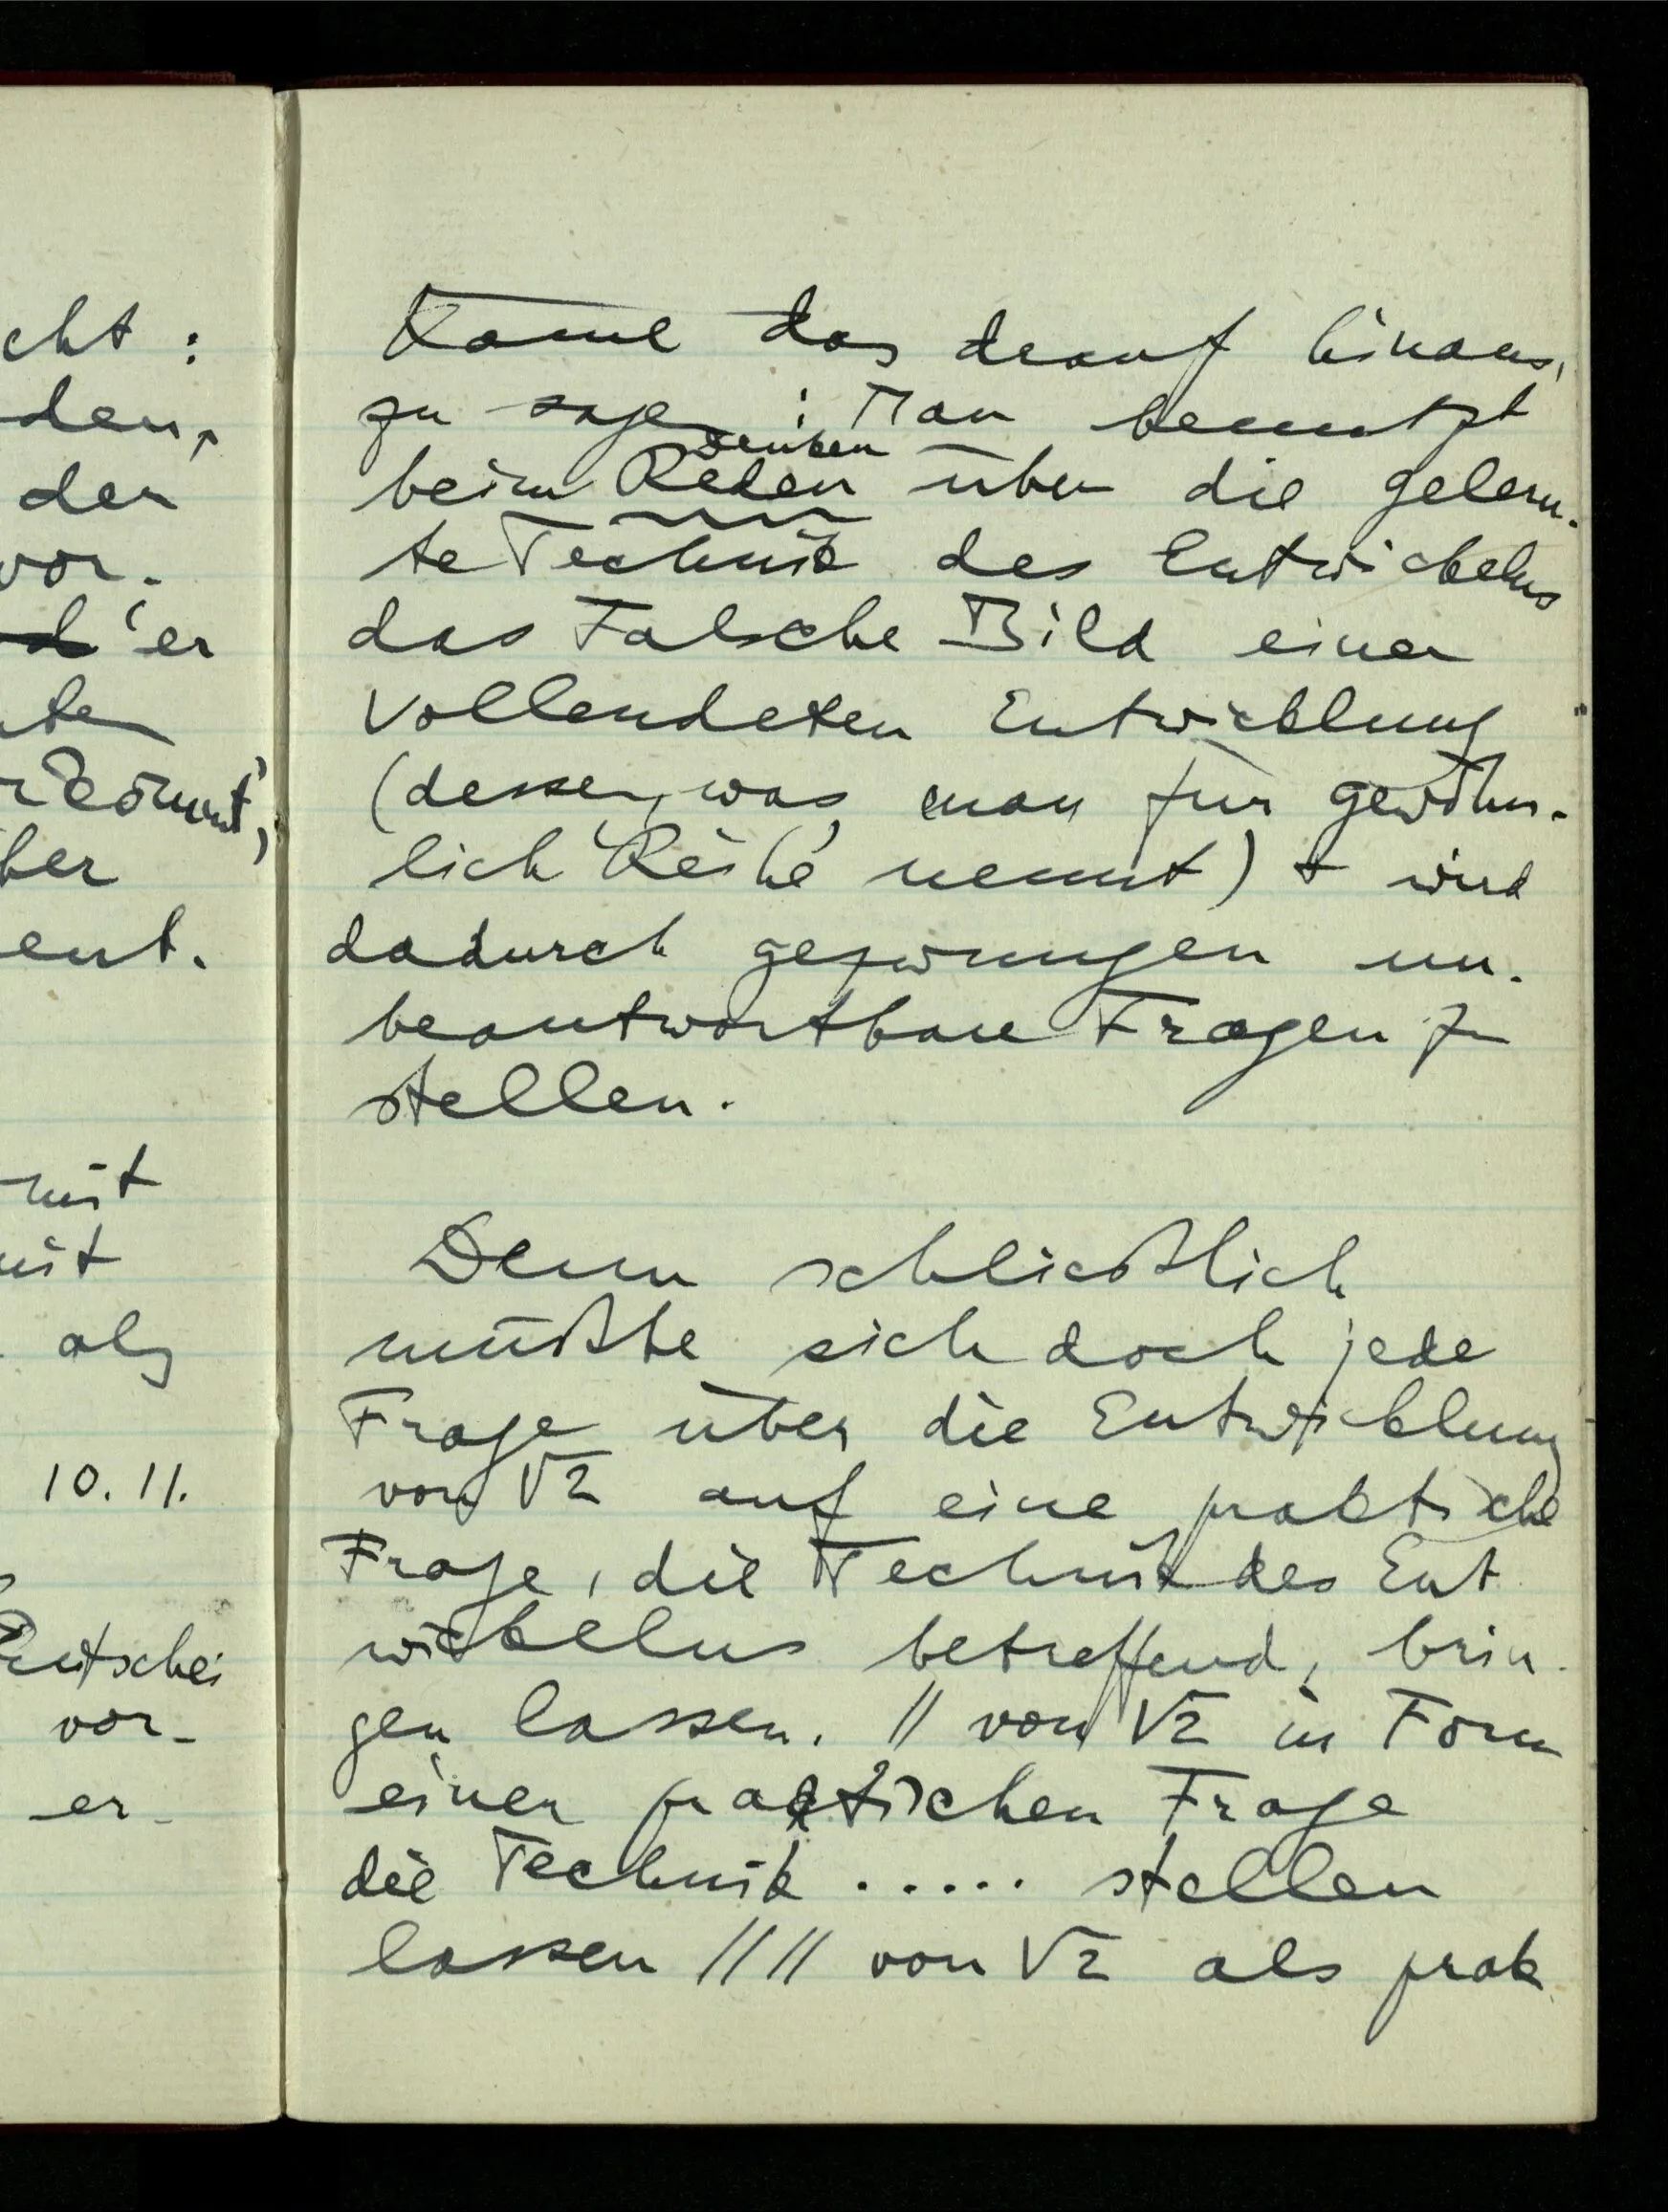 cht :
den,
der
vor-
er
ten
ber
ent.
mit
mit
als
10. 11.
Entschei
vor-
er-
Käme das drauf hinaus,
zu sagen: Man benutzt
denken
beim Reden über die gelern-
te Technik des Entwickelns
das Falsche Bild einer
Vollendeten Entwicklung
(dessen, was man für gewöhn-
lich 'Reihe' nennt) + wird
dadurch gezwungen un-
beantwortbare Fragen zu
stellen.
Denn schließlich
müßte sich doch jede
Frage über die Entwicklung
von √2 auf eine praktische
Frage, die Technik des Ent
wickelns betreffend, brin-
gen lassen. // von √2 in Form
einer praktischen Frage
die Technik ..... stellen
lassen //// von √2 als prak